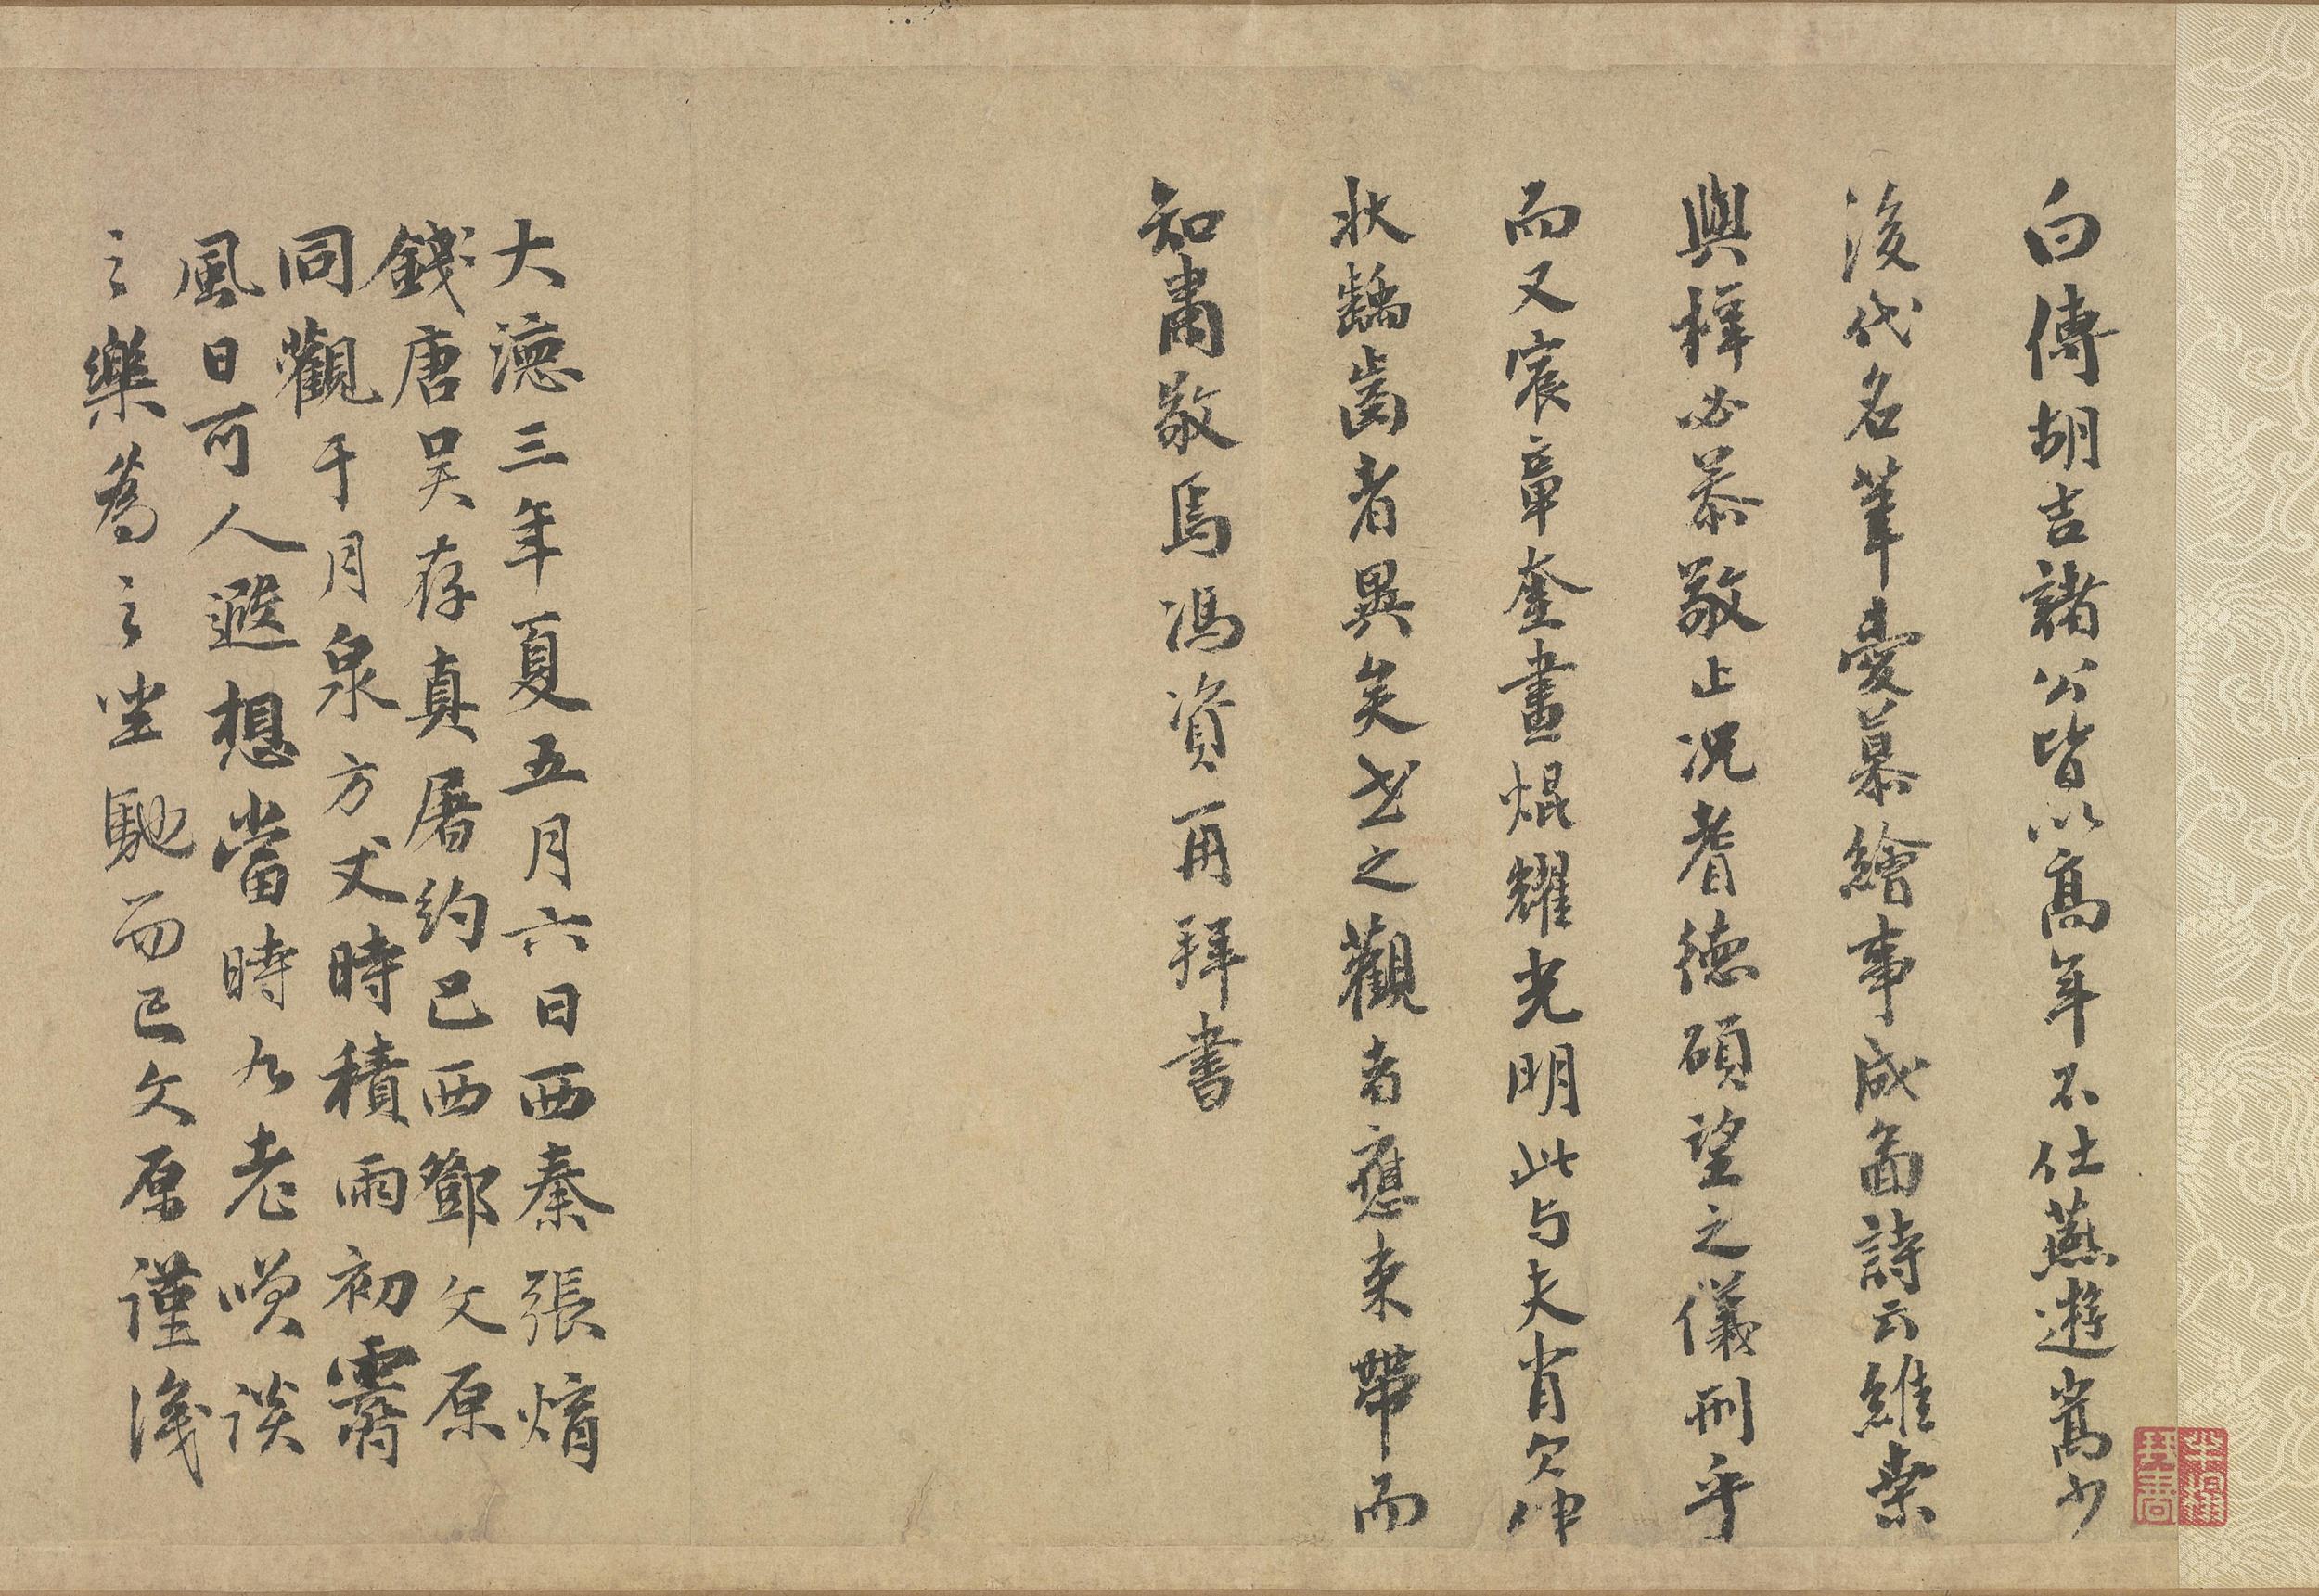 白傅胡吉諸公皆以高年不仕燕遊嵩少
後代名筆憂慕繪事成畵詩云維桑
與梓必恭敬止況耆德碩望之儀刑乎
而又宸章奎畫焜耀光明此与夫肖欠伸
狀齲齒者異矣世之觀者應束帶而
知肅敬焉馮資再拜書
大德三年夏五月六日西秦張煵
錢唐吳存真屠約巴西鄧文原
同觀于月泉方丈時積雨初霽
風日可人遐想當時九老笑談
之樂為之坐馳而已文原謹識